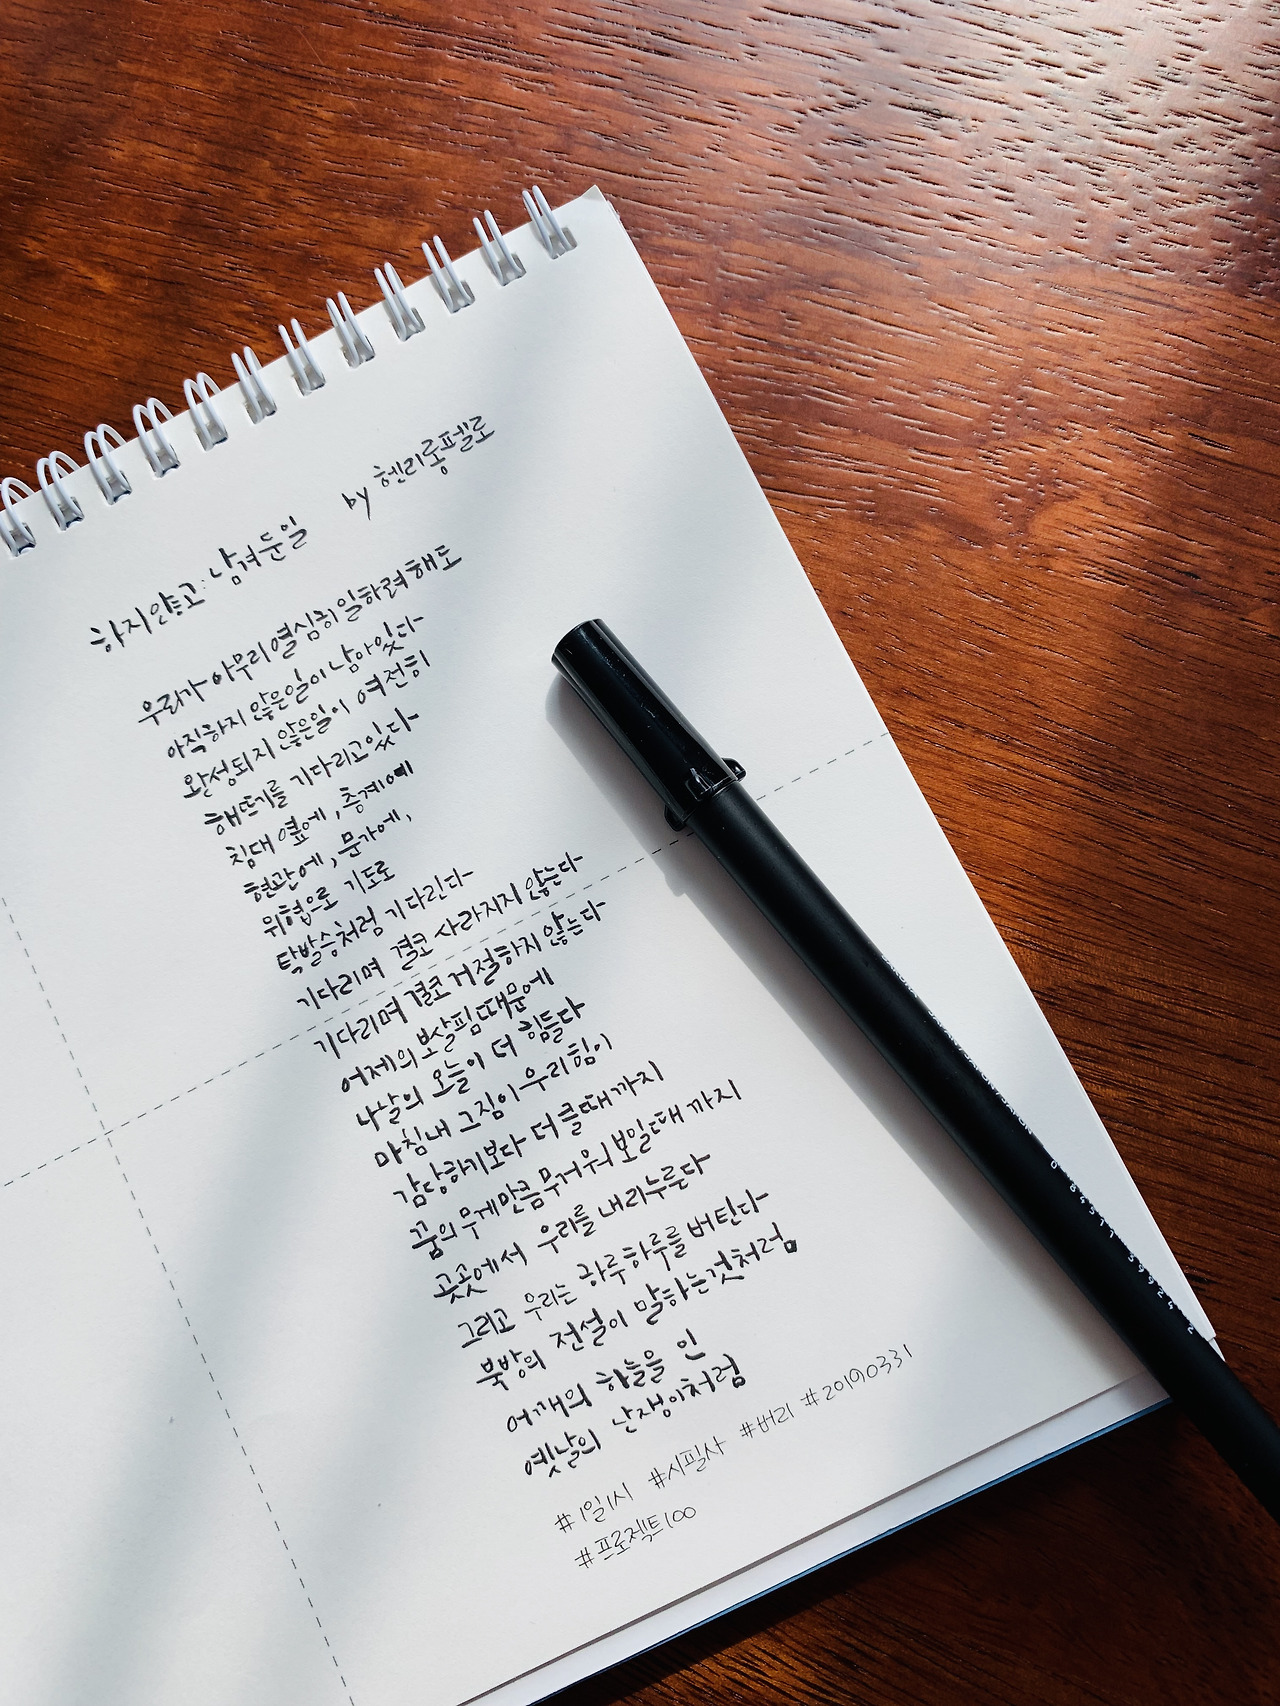 하지않고 남겨둔일 by 헨리롱펠로
우리가 아무리 열심히 일하려해도
아직하지 않은일이 남아있다
완성되지 않은일이 여전히
해뜨기를 기다리고있다
침대 옆에, 층계에
현관에, 문가에,
위협으로 기도로
탁발승처럼 기다린다
기다리며 결코 사라지지 않는다
기다리며 결코 거절하지 않는다
어제의 보살핌 때문에
나날의 오늘이 더 힘들다
마침내 그짐이 우리힘이
감당하기보다 더 클때까지
꿈의 무게만큼 무거워 보일때 까지
곳곳에서 우리를 내리누룬다
그리고 우리는 하루하루를 버틴다
북방의 전설이 말하는것처럼
어깨의 하늘을 인
옛날의 난쟁이처럼
#1일1시 #시필사 #버리 #20190331
#프로젝트100